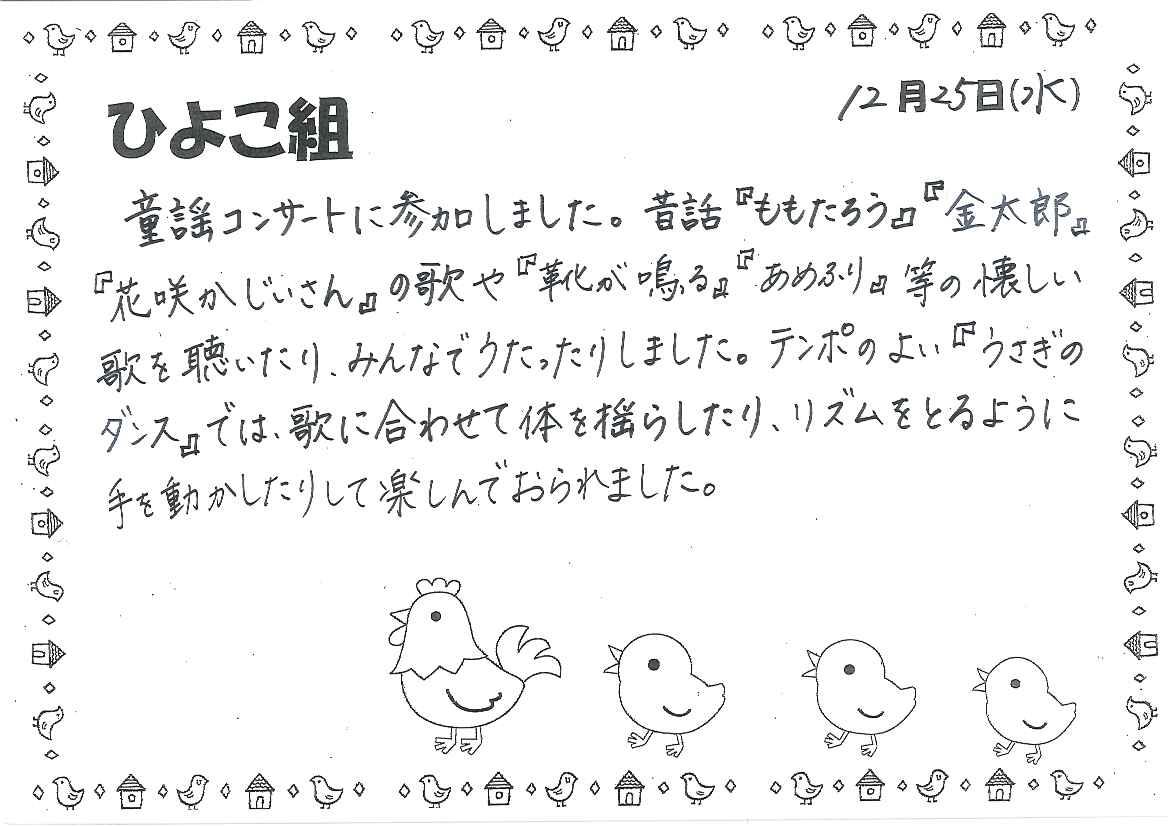 12月25日(水)
ひよこ組
童謡コンサートに参加しました。昔話『ももたろう』『金太郎』
『花咲かじいさん』の歌や『靴が鳴る』『あめふり』等の懐しい
歌を聴いたり、みんなでうたったりしました。テンポのよい『うさぎの
ダンス』では、歌に合わせて体を揺らしたり、リズムをとるように
手を動かしたりして楽しんでおられました。